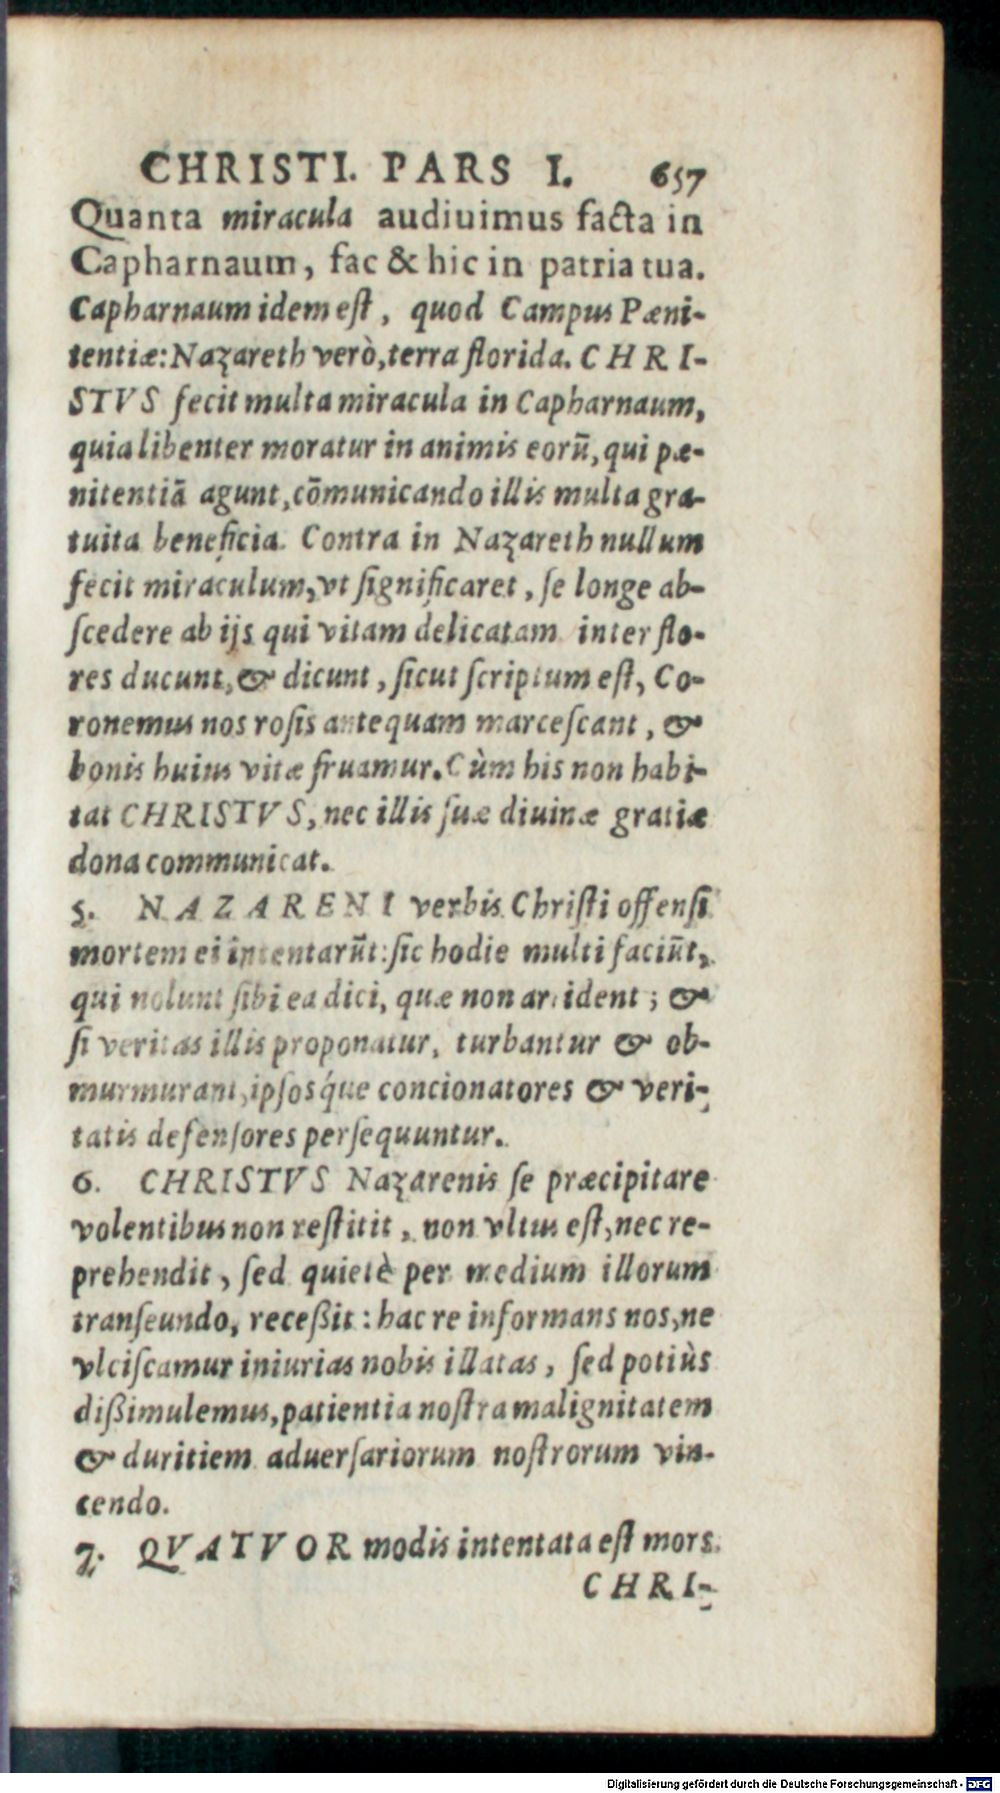 CHRISTI. PARS I. 657
Quanta miracula audiuimus facta in
Capharnaum, fac & hic in patria tua.
Capharnaum idem eſt, quod Campus Pæni-
tentiæ: Nazareth verò, terra florida. CHRI-
STVS fecit multa miracula in Capharnaum,
quia libenter moratur in animis eorũ, qui pæ-
nitentiã agunt, cõmunicando illis multa gra-
tuita beneficia. Contra in Nazareth nullum
fecit miraculum, vt ſignificaret, ſe longe ab-
ſcedere ab ijs qui vitam delicatam inter flo-
res ducunt, & dicunt, ſicut ſcriptum eſt, Co-
ronemus nos roſis antequam marceſcant, &
bonis huius vitæ fruamur. Cùm his non habi-
tat CHRISTVS, nec illis ſuæ diuinæ gratiæ
dona communicat.
5. NAZARENI verbis Chriſti offenſi
mortem ei intentarũt: ſic hodie multi faciũt,
qui nolunt ſibi ea dici, quæ non arrident; &
ſi veritas illis proponatur, turbantur & ob-
murmurant, ipſosq́ue concionatores & veri-
tatis defenſores perſequuntur.
6. CHRISTVS Nazarenis ſe præcipitare
volentibus non reſtitit, non vltus eſt, nec re-
prehendit, ſed quietè per medium illorum
tranſeundo, receßit: hac re informans nos, ne
vlciſcamur iniurias nobis illatas, ſed potiùs
dißimulemus, patientia noſtra malignitatem
& duritiem aduerſariorum noſtrorum vin-
cendo.
7. QVATVOR modis intentata eſt mors
CHRI-
Digitalisierung gefördert durch die Deutsche Forschungsgemeinschaft - DFG